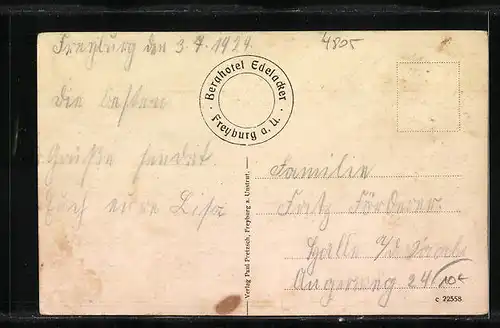 Freyburg den 3.7.1929.
4805
Berghotel Edelacker
Freyburg a. U.
Die besten
Grüße sendet
Euch eure Lisa
Familie
Fritz Förderer
Halle a/S
Angerweg 24
10€
Verlag Paul Pretzsch, Freyburg a. Unstrut.
c 22558